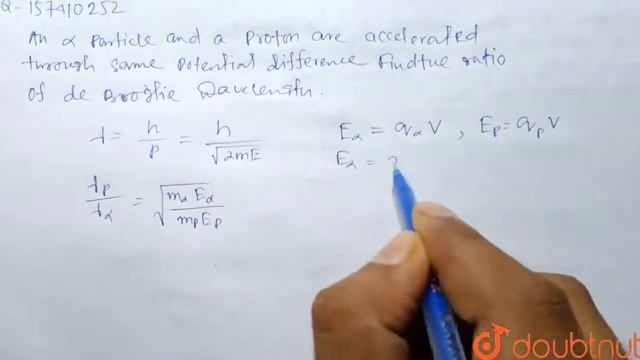 Q-157410252
An α Particle and a Proton are accelerated
through same Potential difference Find the ratio
of de Broglie Wavelength.
λ = h/p = h/√2mE
Eα = qα V , Ep = qp V
λp/λα = √mα Eα/mp Ep
Eα = 2
doubtnut